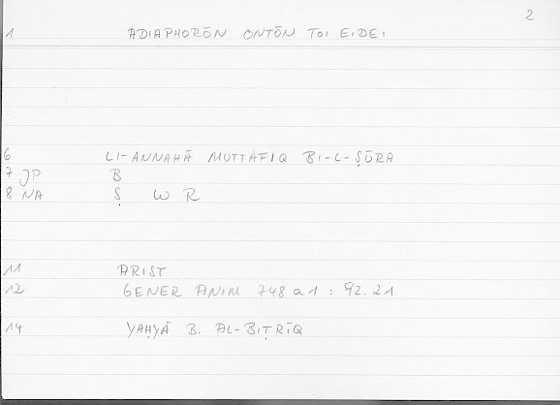 2
1 ADIAPHORŌN ONTŌN TŌI EIDEI
6 LI-ANNAHĀ MUTTAFIQ BI-L-ṢŪRA
7 JP B
8 NA Ṣ W R
11 ARIST
12 GENER ANIM 748 a 1 : 92.21
14 YAḤYĀ B. AL-BIṬRĪQ